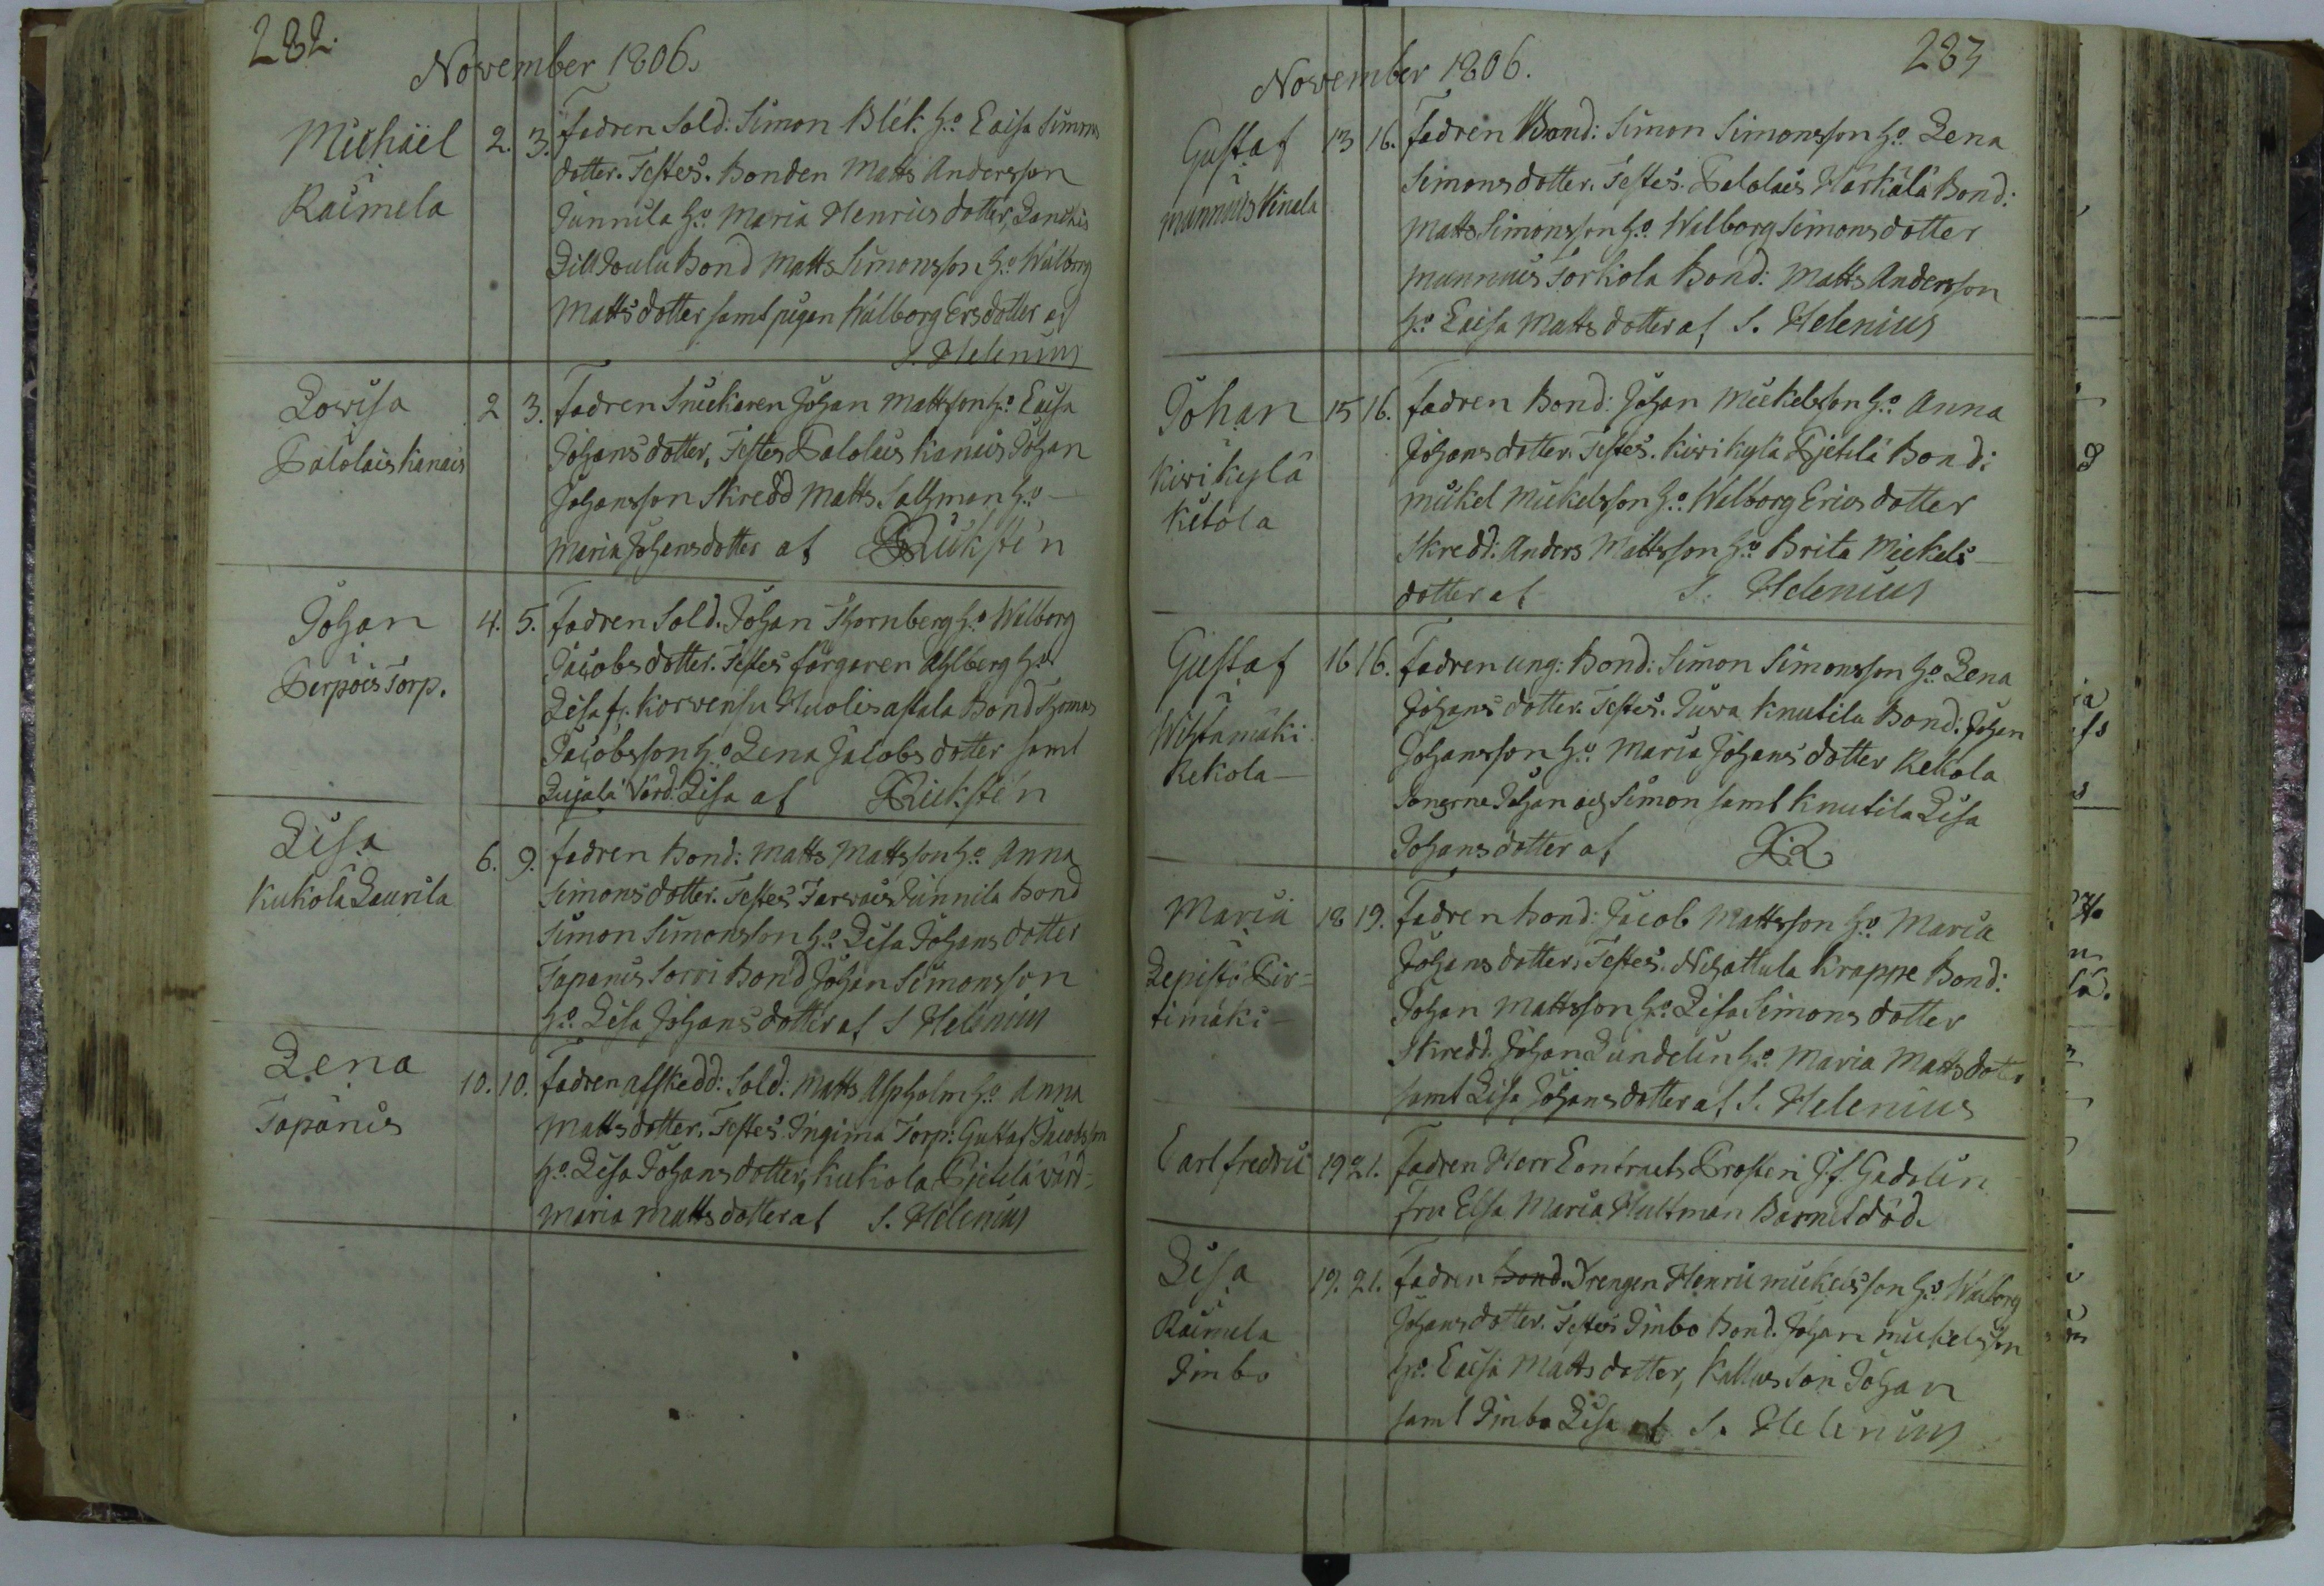 282.
November 1806.
Michäel
i
Raimela
2. 3. Fadren Sold: Simon Blék. h:o Caisa Simons
dotter. Testes. Bonden Matts Andersson
Junnila h:o Maria Henrics dotter,
Bond Matts Simonsson h:o Walborg
Mattsdotter samt pigan Walborg Ersdotter af
S. Helenius
Lovisa
i
Palolais Kanais
2 3. Fadren Snickaren Johan Mattsson h:o Caisa
Johans dotter, Testes Palolais Kanais Johan
Johansson Skredd Matts Saltzman h:o
Maria Johansdotter af Rickstén
Johan
i
Perpois Torp.
4. 5. Fadren Sold. Johan Thornberg h:o Walborg
Jacobs dotter. Testes färgaren Ahlberg h:o
Lisa f. Korvensu Huolis astala Bond Thomas
Jacobsson h:o Lena Jacobs dotter samt
Lujala Värd. Lisa af Rickstén
Lisa
i
Kukola Laurila
6. 9. Fadren Bond: Matts Mattsson h:o Anna
Simons dotter. Testes Tarvais Junnila Bond
Simon Simonsson h:o Lisa Johans dotter
Tapanis Sorri Bond Johan Simonsson
h:o Lisa Johans dotter af S Helenius
Lena
Tapanis
10. 10. Fadren afskedd: Sold: Matts Aspholm h:o Anna
Matts dotter. Testes Ingima Torp: Gustaf Jacobsson
h:o Lisa Johans dotter, Kukola Pjetilä värd-
Maria Matts dotter af S. Helenius
283
November 1806.
Gustaf
i
Munnais Vinala
13 16. Fadren Bond: Simon Simonsson h:o Lena
Simons dotter. Testes. Palolais Härkälä Bond:
Matts Simonsson h:o Walborg Simons dotter
Munnais Torkola Bond: Matts Andersson
h:o Caisa Matts dotter af S. Helenius
Johan
i
Kirikylä
Kitola
15 16. Fadren Bond: Johan Mickelsson h:o Anna
Johans dotter. Testes. Kirikylä Pjetilä Bond:
Mickel Mickelsson h:o Walborg Erics dotter
Skredd: Anders Mattsson h:o Brita Mickels-
dotter af S. Helenius
Gustaf
i
Wihtamäki
Rekola
16 16. Fadren ung: Bond: Simon Simonsson h:o Lena
Johans dotter. Testes. Juva Knutila Bond: Johan
Johansson h:o Maria Johans dotter Rekola
Sönerne Johan och Simon samt Knutila Lisa
Johans dotter af R
Maria
i
Lepistö Pir-
timäki
18 19. Fadren Bond: Jacob Mattsson h:o Maria
Johans dotter. Testes. Nihattula Krappe Bond:
Johan Mattsson h:o Lisa Simons dotter
Skredd. Johan Lundelin h:o Maria Matts dotter
samt Lisa Johans dotter af S. Helenius
Carl Fredric
19 21. Fadren Herr Contracts Prosten J. f. Gadolin
Fru Elsa Maria Hultman Barnet död.
Lisa
i
Raimela
Jimbo
19. 21. Fadren Bond. Drengen Henric Mickelsson h:o Walborg
Johans dotter. Testes Jimbo Bond. Johan Mickelsson
h:o Caisa Matts dotter, Kallas son Johan
samt Jimbo Lisa af S. Helenius